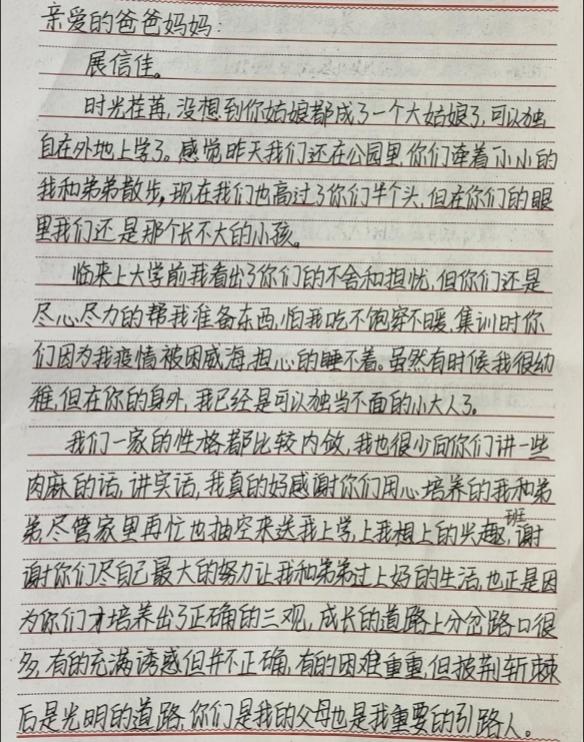 亲爱的爸爸妈妈:
展信佳。
时光荏苒,没想到你姑娘都成了一个大姑娘了,可以独
自在外地上学了。感觉昨天我们还在公园里,你们牵着小小的
我和弟弟散步,现在我们也高过了你们半个头,但在你们的眼
里我们还是那个长不大的小孩。
临来上大学前我看出了你们的不舍和担忧,但你们还是
尽心尽力的帮我准备东西,怕我吃不饱穿不暖,集训时你
们因为我疫情被困威海,担心的睡不着。虽然有时候我很幼
稚,但在你的身外,我已经是可以独当不面的小大人了。
我们一家的性格都比较内敛,我也很少向你们讲一些
肉麻的话,讲实话,我真的好感谢你们用心培养的我和弟
弟,尽管家里再忙也抽空来送我上学,上我想上的兴趣班,谢
谢你们尽自己最大的努力让我和弟弟过上好的生活,也正是因
为你们才培养出了正确的三观,成长的道路上分岔路口很
多,有的充满诱惑但并不正确,有的困难重重,但披荆斩棘
后是光明的道路,你们是我的父母也是我重要的引路人。